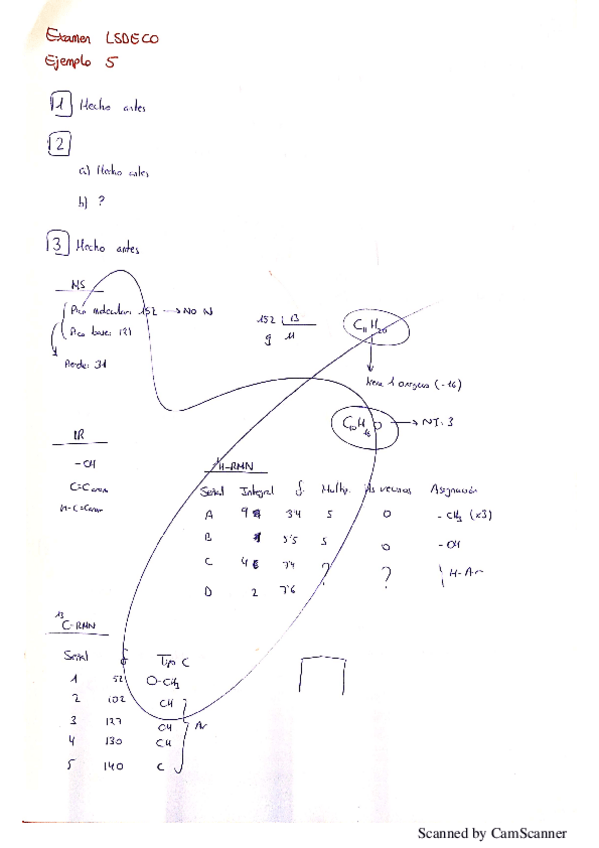 Examen LSDECO
Ejemplo 5
1 Hecho antes
2
a) Hecho antes
b) ?
3 Hecho antes
MS
Pico molecular 152 → NO N
Pico base: 121
Perde: 31
152 13
9 11
C11H20
tiene 1 oxígeno (-16)
→ NI: 3
IR
-OH
C=C
H-C=C
1H-RMN
Señal Integral δ Multip. Asignación
A 9 3'4 S 0 -CH3 (x3)
B 5'5 S 0 -OH
C 4 7'4 ? ? H-Ar
D 2 7'6
13C-RMN
Señal δ Tipo C
1 52 O-CH3
2 102 CH
3 127 CH Ar
4 130 CH
5 140 C
Scanned by CamScanner